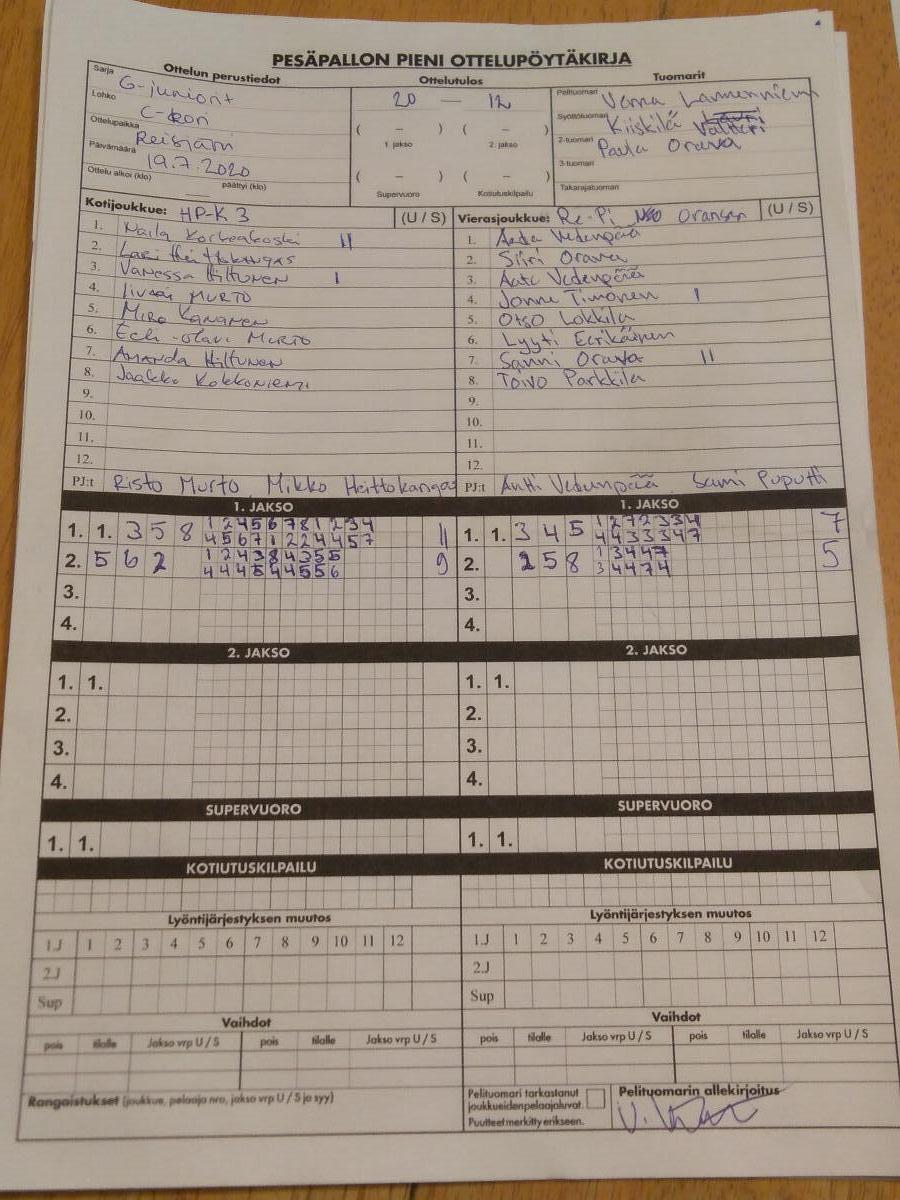 PESÄPALLON PIENI OTTELUPÖYTÄKIRJA
Ottelun perustiedot
Sarja G-juniorit
Lohko C-pori
Ottelupaikka Reisjärvi
Päivämäärä 19.7.2020
Ottelu alkoi (klo) päättyi (klo)
Ottelutulos
20 — 12
( – ) ( – )
1. jakso 2. jakso
( – ) ( – )
Supervuoro Kotiutuskilpailu
Tuomarit
Pelituomari Verna
Syöttötuomari Kiiskilä Valtteri
2-tuomari Paula Orava
3-tuomari
Takarajatuomari
Kotijoukkue: HP-K 3 (U / S)
1. Naila Korkeakoski II
2. Lari Heittokangas
3. Vanessa Hiltunen I
4. Iivari Murto
5. Miro Kananen
6. Murto
7. Amanda Hiltunen
8. Jaakko Kokkoniemi
9.
10.
11.
12.
PJ:t Risto Murto Mikko Heittokangas
Vierasjoukkue: Re-Pi Oranssi (U / S)
1. Vedenpää
2. Siiri Orava
3. Aatu Vedenpää
4. Jonne Timonen I
5. Otso Lokkila
6. Lyyti Eerikäinen
7. Sanni Orava II
8. Toivo Parkkila
9.
10.
11.
12.
PJ:t Antti Vedenpää Sami Puputti
1. JAKSO
1. 1. 3 5 8 1 2 4 5 6 7 8 1 2 3 4 11
4 5 6 7 1 2 2 4 4 5 7
2. 5 6 2 1 2 4 3 8 4 3 5 5 9
4 4 4 5 4 4 5 5 6
3.
4.
1. JAKSO
1. 1. 3 4 5 1 2 7 2 3 3 4 7
4 4 3 3 3 4 7
2. 2 5 8 1 3 4 4 7 5
3 4 4 7 4
3.
4.
2. JAKSO
1. 1.
2.
3.
4.
2. JAKSO
1. 1.
2.
3.
4.
SUPERVUORO
1. 1.
SUPERVUORO
1. 1.
KOTIUTUSKILPAILU
KOTIUTUSKILPAILU
Lyöntijärjestyksen muutos
1.J 1 2 3 4 5 6 7 8 9 10 11 12
2.J
Sup
Lyöntijärjestyksen muutos
1.J 1 2 3 4 5 6 7 8 9 10 11 12
2.J
Sup
Vaihdot
pois tilalle Jakso vrp U / S pois tilalle Jakso vrp U / S
Vaihdot
pois tilalle Jakso vrp U / S pois tilalle Jakso vrp U / S
Rangaistukset (joukkue, pelaaja nro, jakso vrp U / S ja syy)
Pelituomari tarkastanut
joukkueidenpelaajaluvat.
Puutteet merkitty erikseen.
Pelituomarin allekirjoitus